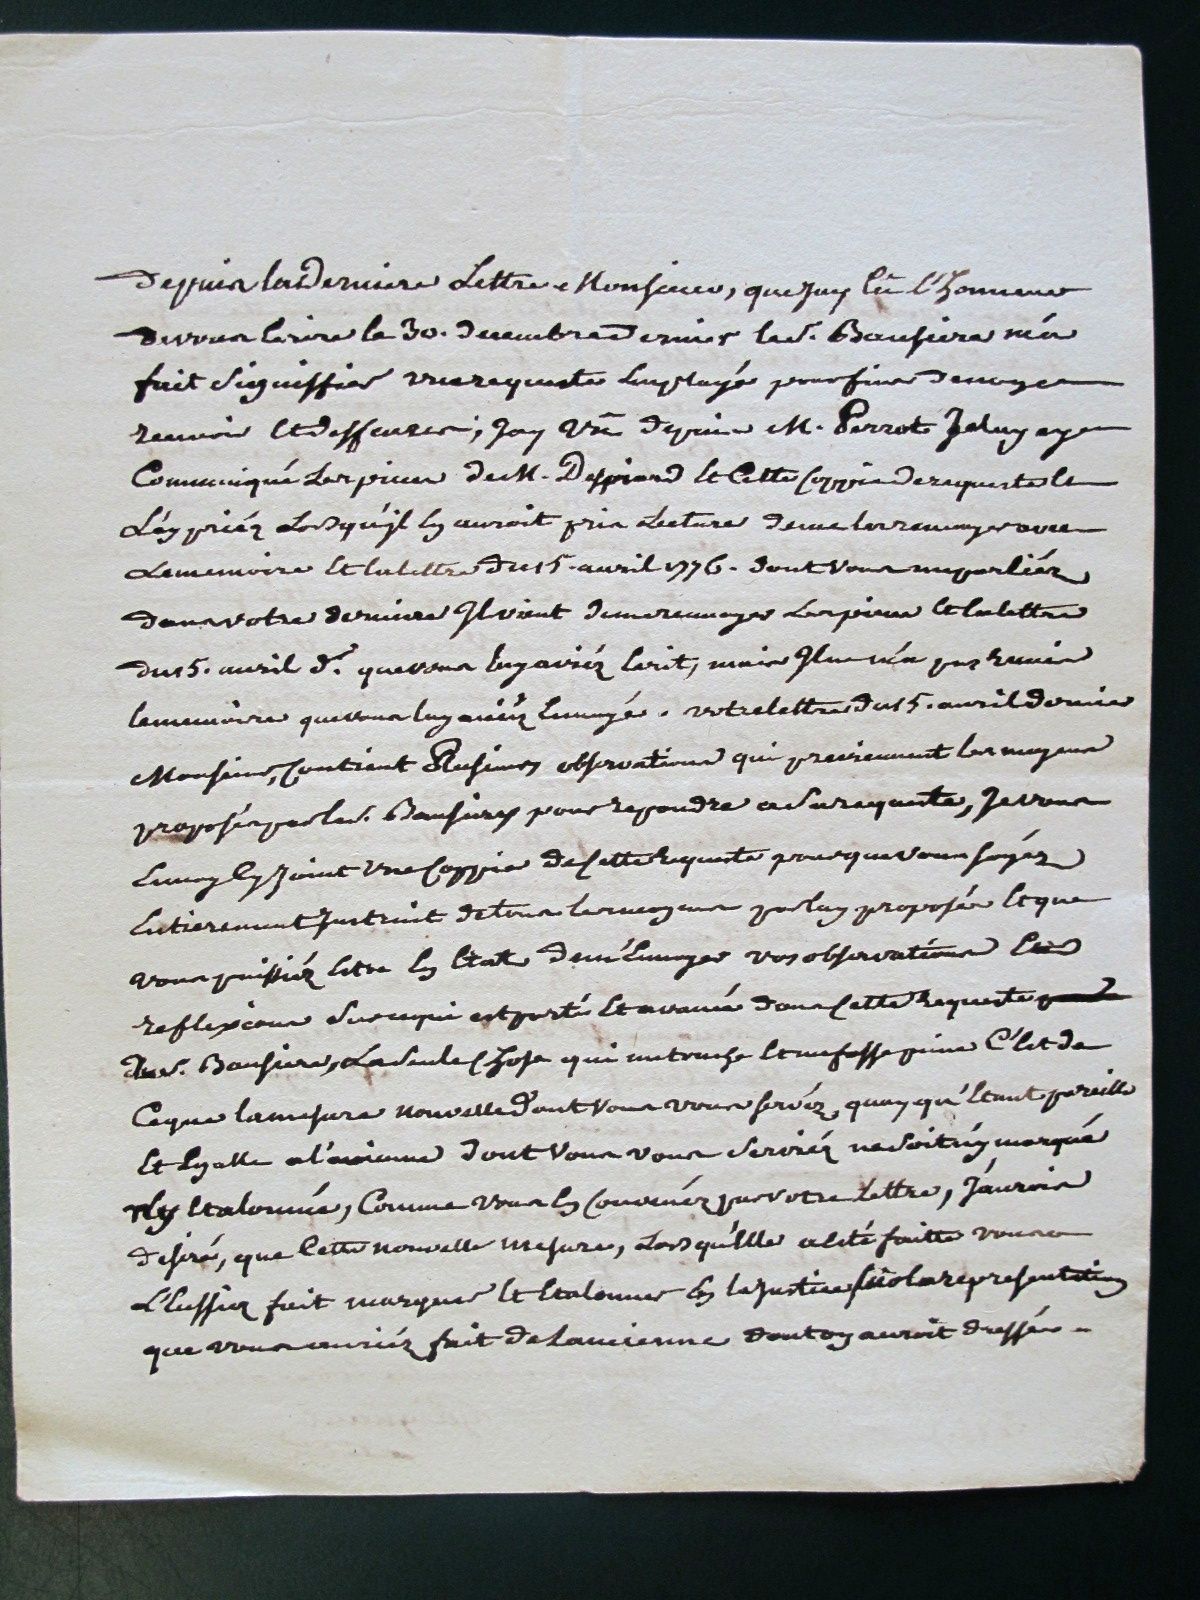 Depuis la Derniere Lettre Monsieur, que Jay Eü l'honneur
de vous Ecrire le 30. decembre Dernier le S. Bausiere m'a
fait signiffier une requeste Employée pour fins de moyens
renvoir Et deffences; Jay vû depuis M. Perrot Je luy ay
Communiqué Les pieces de M. Despiard Et Cette Coppie de requeste Et
L'ay priéz Lorsqu'jl En auroit pris Lecture de me les renvoyer avec
Le memoire Et la lettre du 15. avril 1776. dont vous me parliéz
dans votre derniere Il vient de me renvoyer Les pieces Et la lettre
du 15. avril dr. que vous luy aviéz Ecrit, mais Il ne m'a pas Remis
le memoire que vous luy aviéz Envoyé. votre lettre du 15. avril dernier
Monsieur, Contient Plusieurs observations qui previennent les moyens
proposés par le S. Bausiere pour repondre a Sa requeste, Je vous
Envoy Cy Joint une Coppie de Cette Requeste pour que vous soyéz
Entierement Instruit de tous les moyens par luy proposés Et que
vous puissiéz Etre En Etat de m'Envoyer vos observations Et
reflexions Sur ce qui est porté Et avancé dans Cette Requeste
du S. Bausiere, La Seule Chose qui me touche Et me fasse peine C'Est de
Ce que la mesure nouvelle dont vous vous servéz, quoy qu'Etant pareille
Et Egalle a l'ancienne dont vous vous Serviéz ne Soit ny marquée
ny Etalonnée, Comme vous En Convenéz par votre Lettre, J'aurois
desiré, que Cette nouvelle mesure, Lorsqu'Elle a Eté faitte vous
L'Eussiez fait marquer Et Etalonner En la Justice sur la representation
que vous auriéz fait de L'ancienne dont on auroit dressé